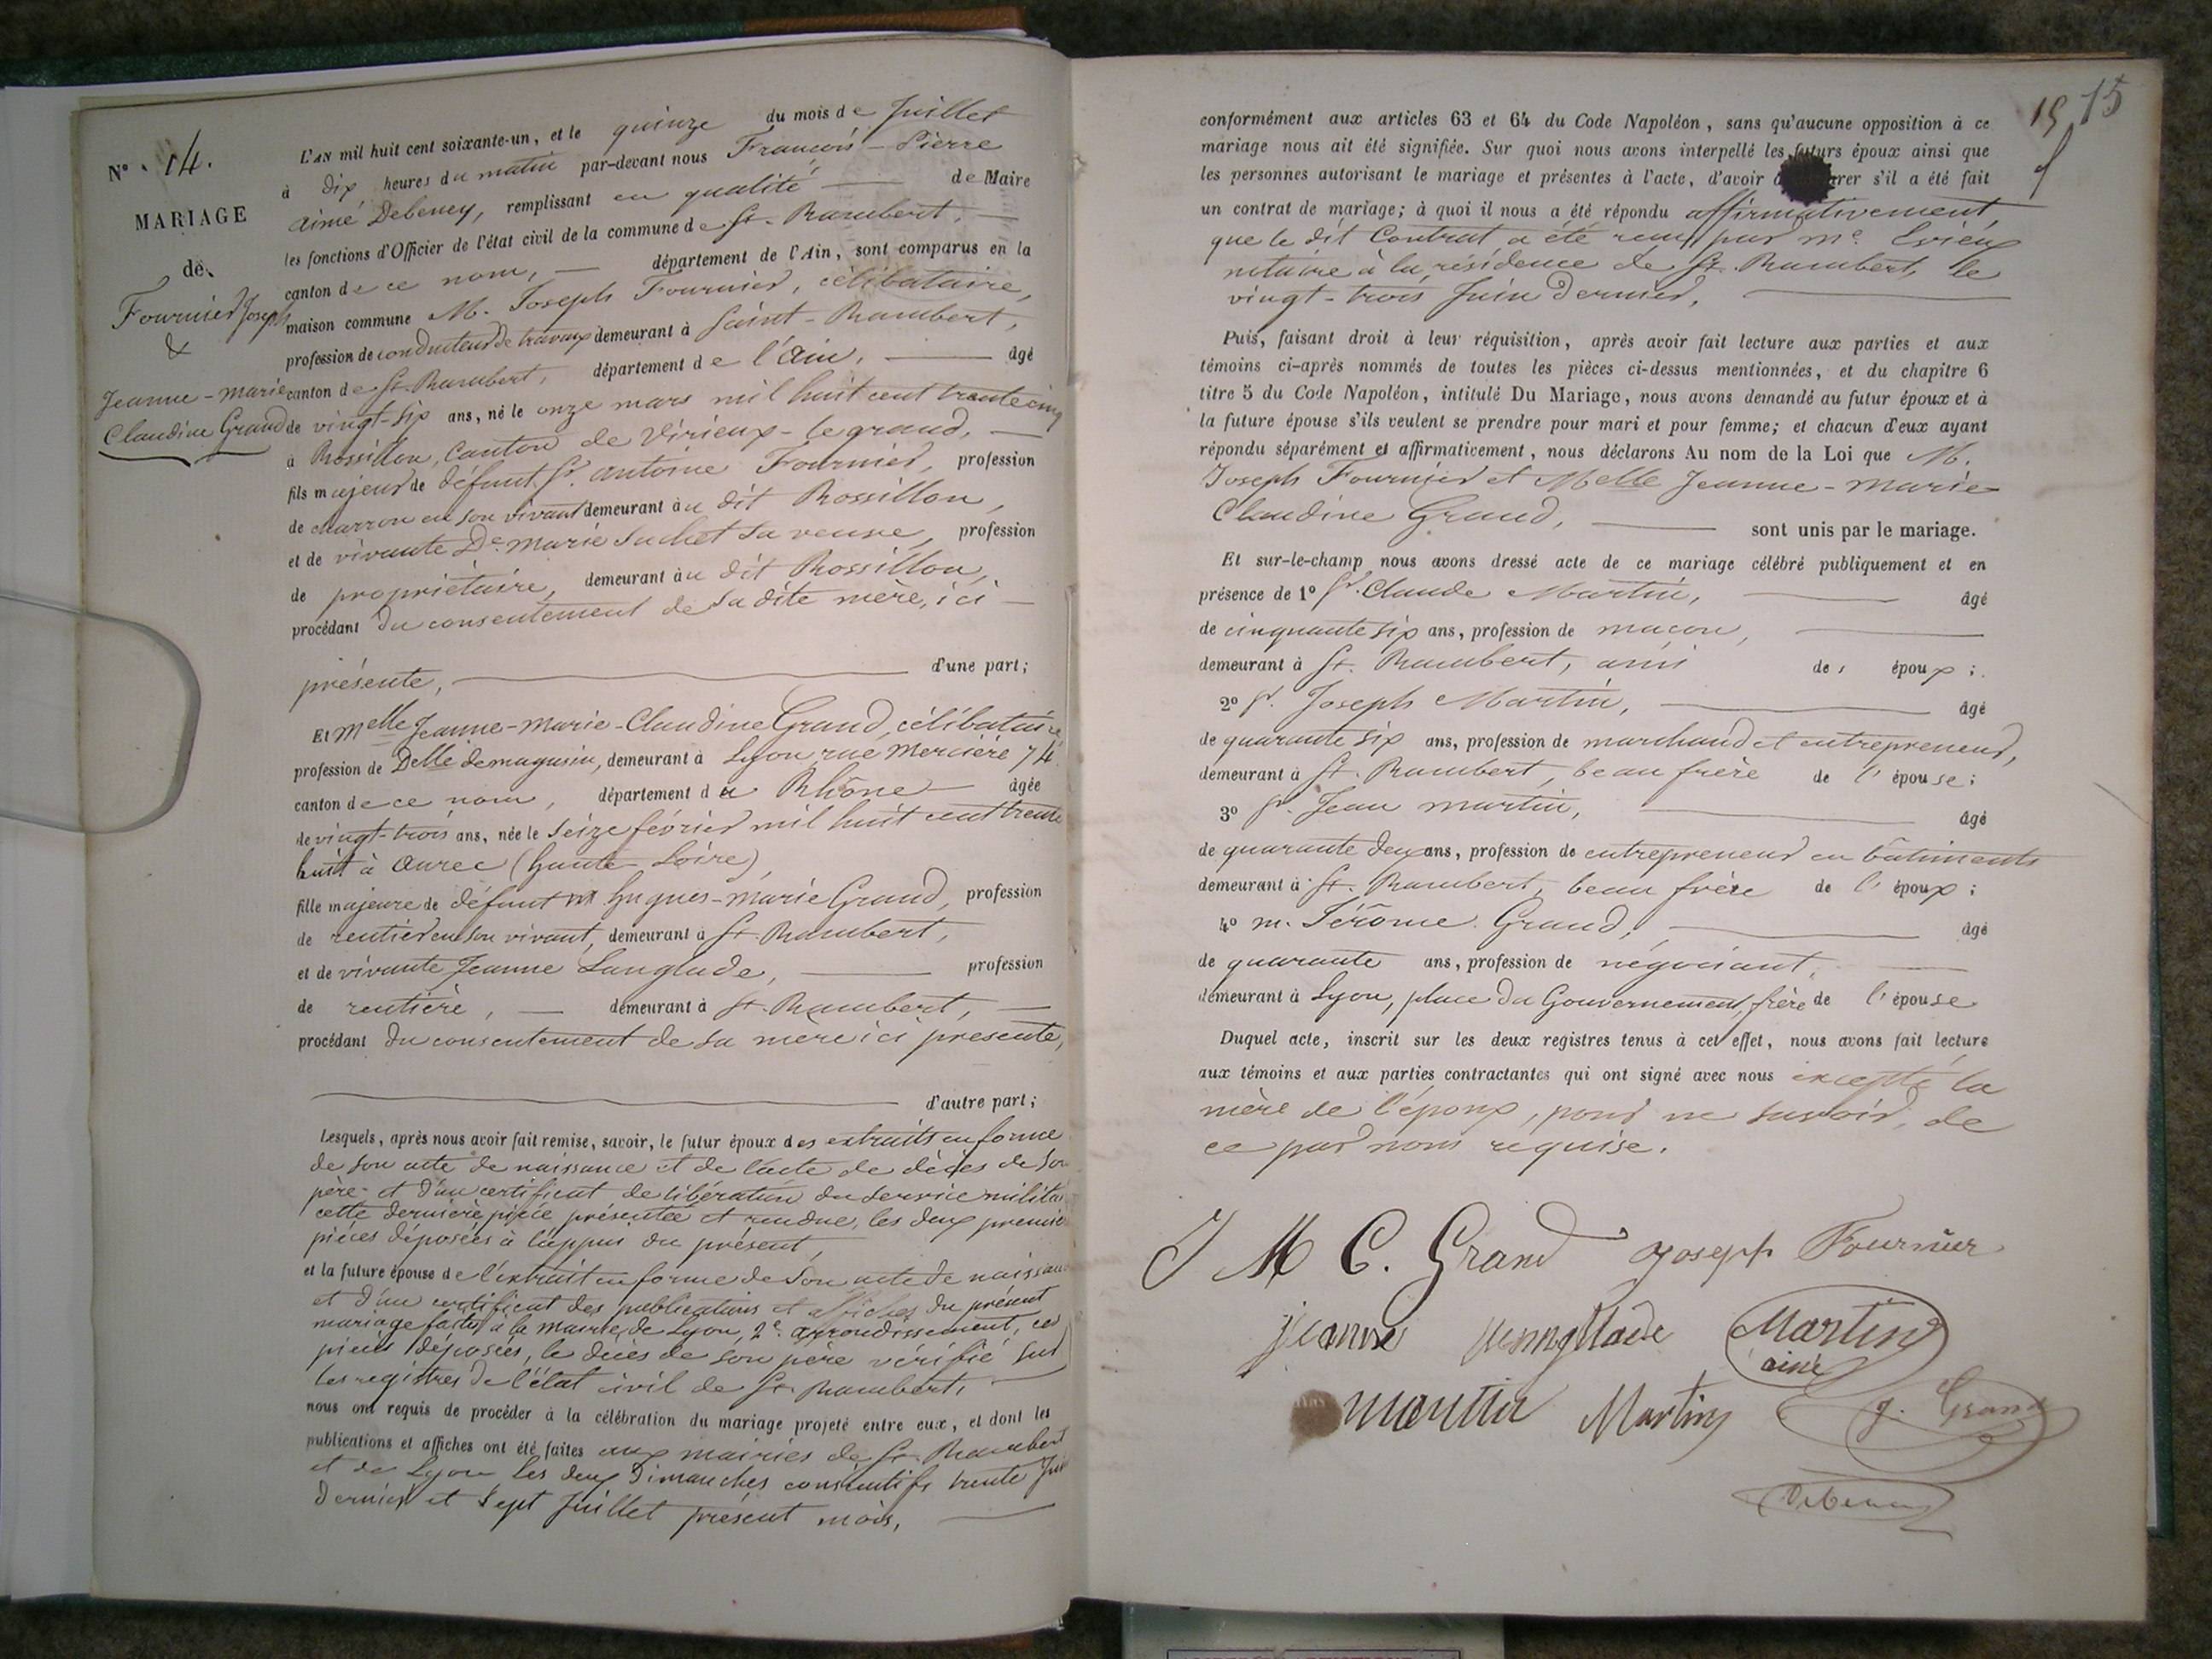 N° 14.
MARIAGE
de
Fournier Joseph
&
Jeanne-Marie
Claudine Grand
L'AN mil huit cent soixante-un, et le quinze du mois de Juillet
à dix heures du matin par-devant nous François-Pierre
Aimé Debeney, remplissant en qualité de Maire
les fonctions d'Officier de l'état civil de la commune de St. Rambert,
canton de ce nom, département de l'Ain, sont comparus en la
maison commune M. Joseph Fournier, célibataire,
profession de conducteur de travaux demeurant à Saint-Rambert,
canton de St. Rambert, département de l'Ain, âgé
de vingt-six ans, né le onze mars mil huit cent trente cinq
à Rossillon, Canton de Virieux-le grand,
fils majeur de défunt Sr. Antoine Fournier, profession
de charron en son vivant demeurant au dit Rossillon,
et de vivante De. Marie Suchet sa veuve, profession
de propriétaire, demeurant au dit Rossillon,
procédant du consentement de sa dite mère, ici
présente, d'une part;
Et Melle Jeanne-Marie-Claudine Grand, célibataire
profession de Delle de magasin, demeurant à Lyon rue Mercière 74
canton de ce nom, département du Rhône âgée
de vingt-trois ans, née le seize février mil huit cent trente
huit à Aurec (haute-Loire)
fille majeure de défunt M Hugues-Marie Grand, profession
de rentier en son vivant, demeurant à St. Rambert,
et de vivante Jeanne Langlade, profession
de rentière, demeurant à St. Rambert,
procédant du consentement de sa mère ici présente,
d'autre part;
Lesquels, après nous avoir fait remise, savoir, le futur époux des extraits en forme
de son acte de naissance et de l'acte de décès de son
père et d'un certificat de libération du service militai
cette dernière pièce présentée et rendue, les deux premiè
pièces déposées à l'appui du présent,
et la future épouse de l'extrait en forme de son acte de naissan
et d'un certificat des publications et affiches du présent
mariage faites à la mairie de Lyon, 2e. arrondissement, ces
pièces déposées, le décès de son père vérifié sur
les registres de l'état civil de St. Rambert,
nous ont requis de procéder à la célébration du mariage projeté entre eux, et dont les
publications et affiches ont été faites aux mairies de St. Rambert
et de Lyon les deux Dimanches consécutifs trente Juin
dernier et sept Juillet présent mois,
15 15
conformément aux articles 63 et 64 du Code Napoléon, sans qu'aucune opposition à ce
mariage nous ait été signifiée. Sur quoi nous avons interpellé les futurs époux ainsi que
les personnes autorisant le mariage et présentes à l'acte, d'avoir à rer s'il a été fait
un contrat de mariage; à quoi il nous a été répondu affirmativement,
que le dit Contrat a été reçu par me.
notaire à la résidence de St. Rambert, le
vingt-trois Juin dernier.
Puis, faisant droit à leur réquisition, après avoir fait lecture aux parties et aux
témoins ci-après nommés de toutes les pièces ci-dessus mentionnées, et du chapitre 6
titre 5 du Code Napoléon, intitulé Du Mariage, nous avons demandé au futur époux et à
la future épouse s'ils veulent se prendre pour mari et pour femme; et chacun d'eux ayant
répondu séparément et affirmativement, nous déclarons Au nom de la Loi que M.
Joseph Fournier et Melle Jeanne-Marie
Claudine Grand, sont unis par le mariage.
Et sur-le-champ nous avons dressé acte de ce mariage célébré publiquement et en
présence de 1° Sr. Claude Martin, âgé
de cinquante six ans, profession de maçon,
demeurant à St. Rambert, ami des époux;
2° Sr. Joseph Martin, âgé
de quarante six ans, profession de marchand et entrepreneur,
demeurant à St. Rambert, beau frère de l'épouse;
3° Sr. Jean Martin, âgé
de quarante deux ans, profession de entrepreneur en bâtiments
demeurant à St. Rambert, beau frère de l'époux;
4° m. Jérôme Grand, âgé
de quarante ans, profession de négociant,
demeurant à Lyon, place du Gouvernement, frère de l'épouse
Duquel acte, inscrit sur les deux registres tenus à cet effet, nous avons fait lecture
aux témoins et aux parties contractantes qui ont signé avec nous excepté la
mère de l'époux, pour ne savoir, de
ce par nous requise.
J M C. Grand Joseph Fournier
jeanne Martin
ainé
martin Martin j. Grand
Debeney